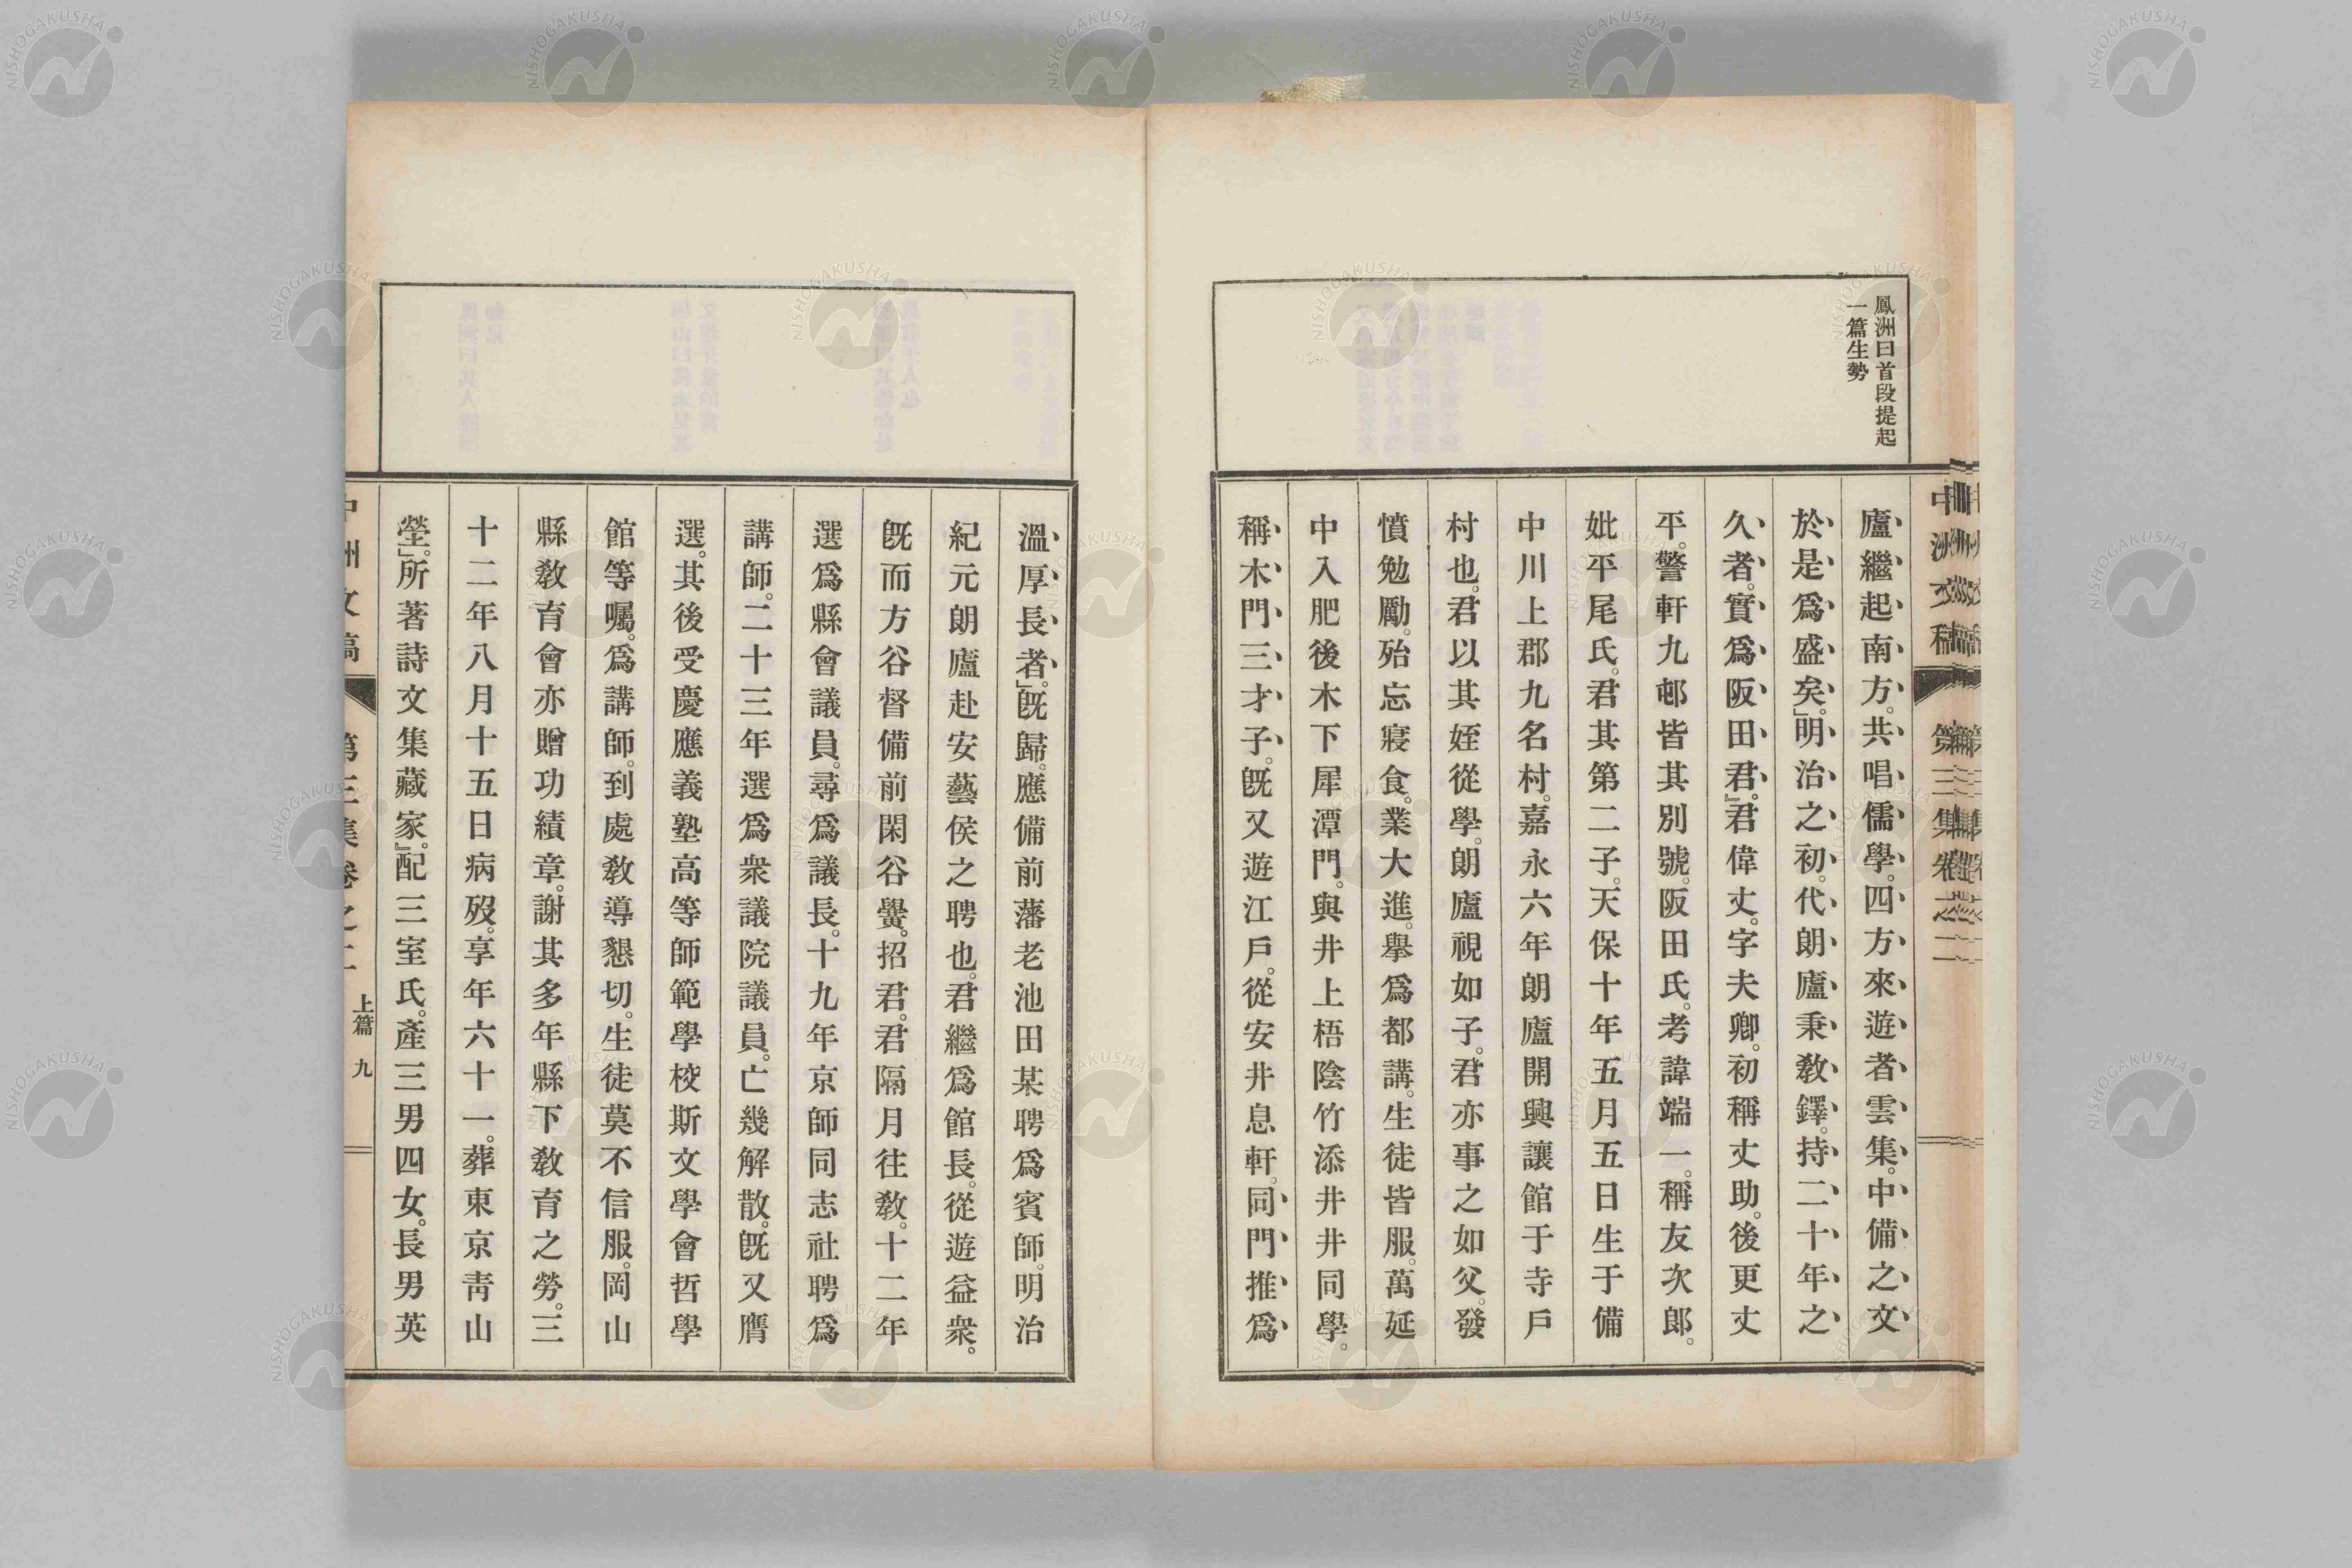 鳳洲曰首段提起
一篇生勢
廬繼起南方。共唱儒學。四方來遊者雲集。中備之文
於是爲盛矣。」明治之初。代朗廬秉敎鐸。持二十年之
久者。實爲阪田君。』君偉丈。字夫卿。初稱丈助。後更丈
平。警軒九邨皆其別號。阪田氏。考諱端一。稱友次郎。
妣平尾氏。君其第二子。天保十年五月五日生于備
中川上郡九名村。嘉永六年朗廬開興讓館于寺戶
村也。君以其姪從學。朗廬視如子。君亦事之如父。發
憤勉勵。殆忘寢食。業大進。擧爲都講。生徒皆服。萬延
中入肥後木下犀潭門。與井上梧陰竹添井井同學。
稱木門三才子。旣又遊江戶。從安井息軒。同門推爲
溫厚長者。」旣歸。應備前藩老池田某聘爲賓師。明治
紀元朗廬赴安藝侯之聘也。君繼爲館長。從遊益衆。
旣而方谷督備前閑谷黌。招君。君隔月往敎。十二年
選爲縣會議員。尋爲議長。十九年京師同志社聘爲
講師。二十三年選爲衆議院議員。亡幾解散。旣又膺
選。其後受慶應義塾高等師範學校斯文學會哲學
館等囑。爲講師。到處敎導懇切。生徒莫不信服。岡山
縣敎育會亦贈功績章。謝其多年縣下敎育之勞。三
十二年八月十五日病歿。享年六十一。葬東京靑山
塋。」所著詩文集藏家。』配三室氏。產三男四女。長男英
中洲文稿 第三集卷之二 上篇 九